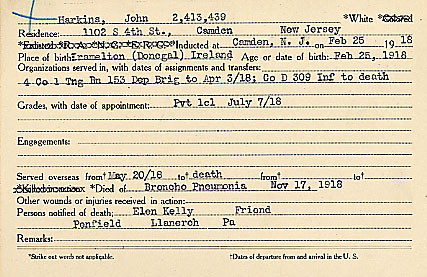 Harkins, John 2,413,439 *White *Colored
Residence: 1102 S 4th St., Camden New Jersey
*Inducted at Camden, N. J. on Feb 25 1918
Place of birth: Iramelton (Donegal) Ireland Age or date of birth: Feb 25, 1918
Organizations served in, with dates of assignments and transfers:
4 Co 1 Tng Bn 153 Dep Brig to Apr 3/18; Co D 309 Inf to death
Grades, with date of appointment: Pvt 1cl July 7/18
Engagements:
Served overseas from† May 20/18 to† death from† to†
*Died of Broncho Pneumonia Nov 17, 1918
Other wounds or injuries received in action:
Persons notified of death: Elen Kelly Friend
Penfield Llanerch Pa
Remarks:
*Strike out words not applicable. †Dates of departure from and arrival in the U. S.